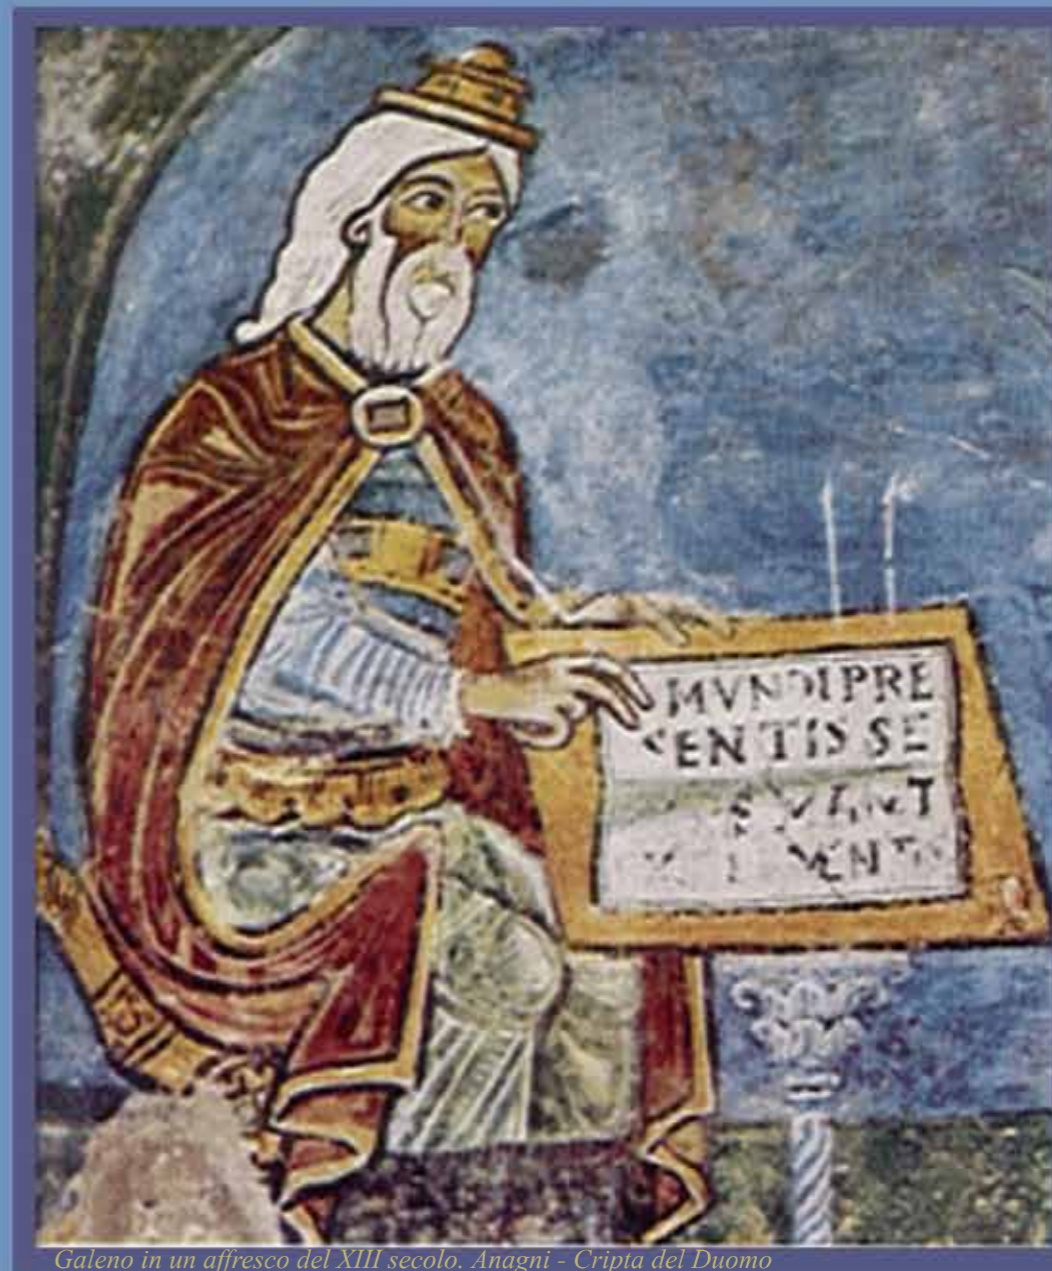 MVNDI PRE
SENTIS SE
Galeno in un affresco del XIII secolo. Anagni - Cripta del Duomo